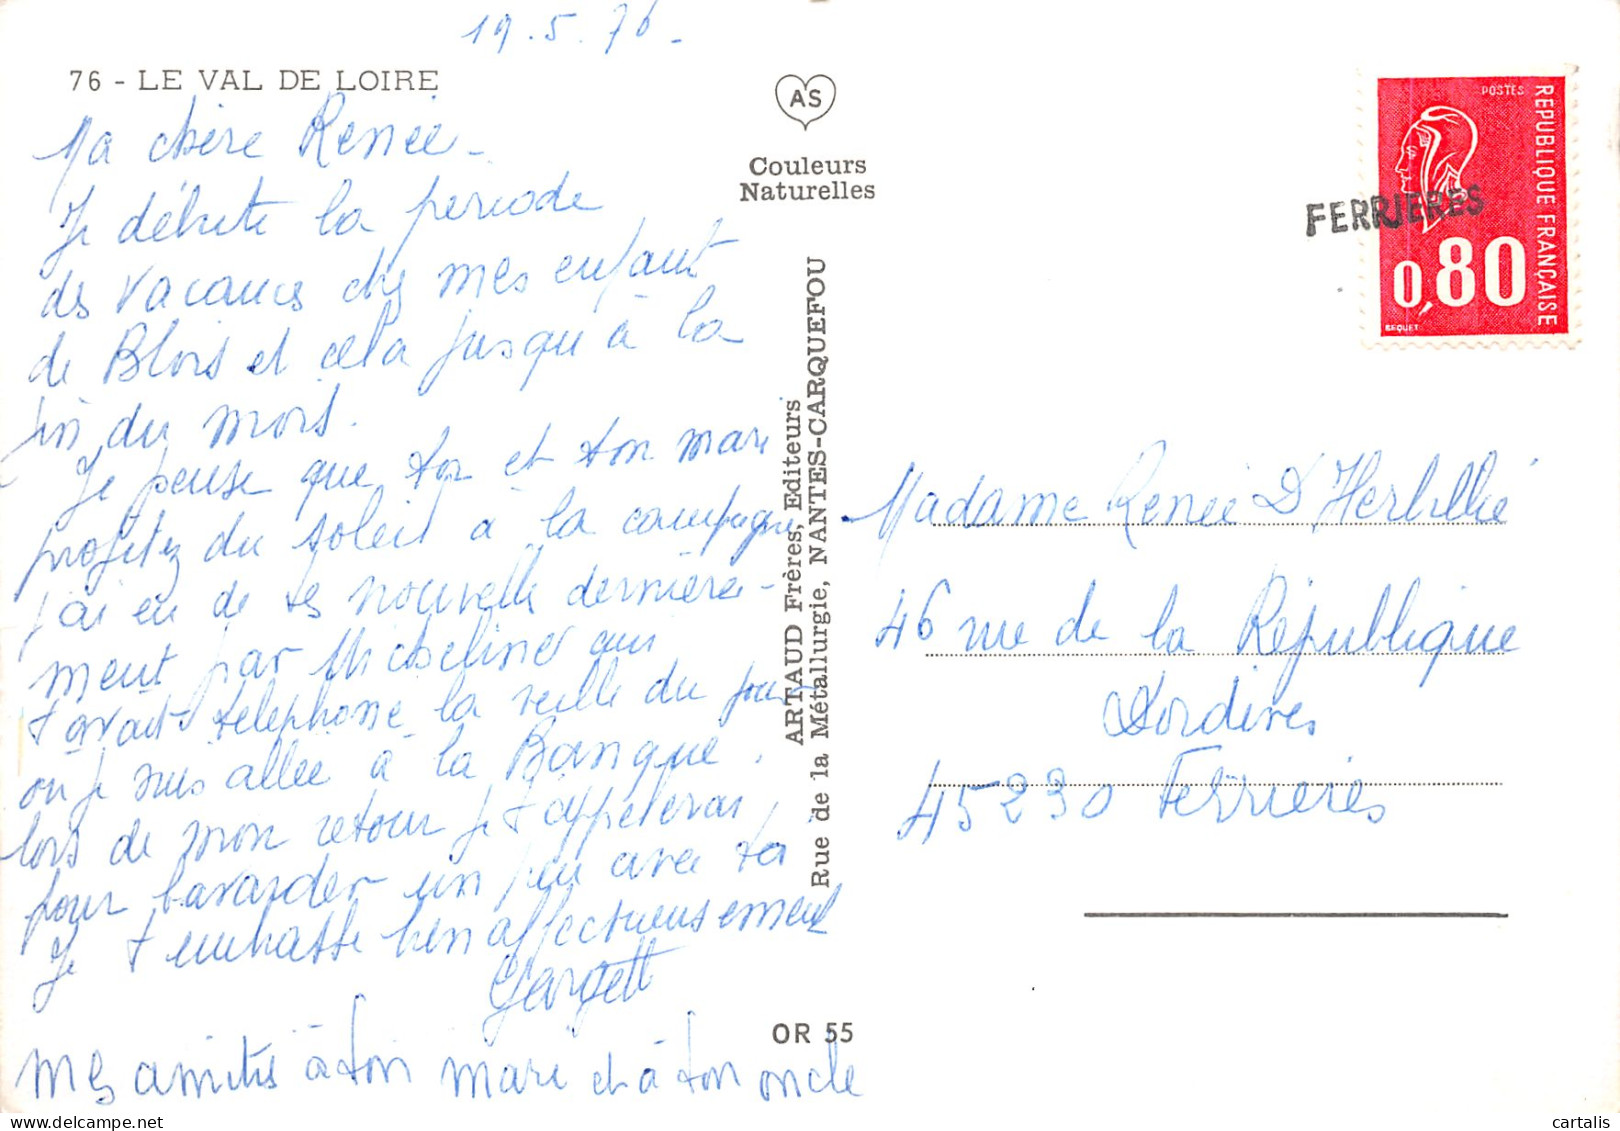 19.5.76-
76 - LE VAL DE LOIRE
Ma chère Renée-
Je débute la période
des vacances chez mes enfant
de Blois et cela jusqu'à la
fin du mois.
Je pense que toi et ton mari
profitez du soleil a la campagne
j'ai eu de tes nouvelle dernière-
ment par Micheline qui
t'avait téléphoné la veille du jour
ou je suis allée à la Banque.
lors de mon retour je t'appelerai
pour bavarder un peu avec toi
Je t'embrasse bien affectueusement
mes amitiés à ton mari et à ton oncle
AS
Couleurs
Naturelles
ARTAUD Frères, Editeurs
Rue de la Métallurgie, NANTES-CARQUEFOU
OR 55
POSTES
REPUBLIQUE FRANÇAISE
0,80
BEQUET
FERRIERES
Madame Renée D'Herbillié
46 rue de la République
Dordives
45230 Ferrières
cartalis
www.delcampe.net